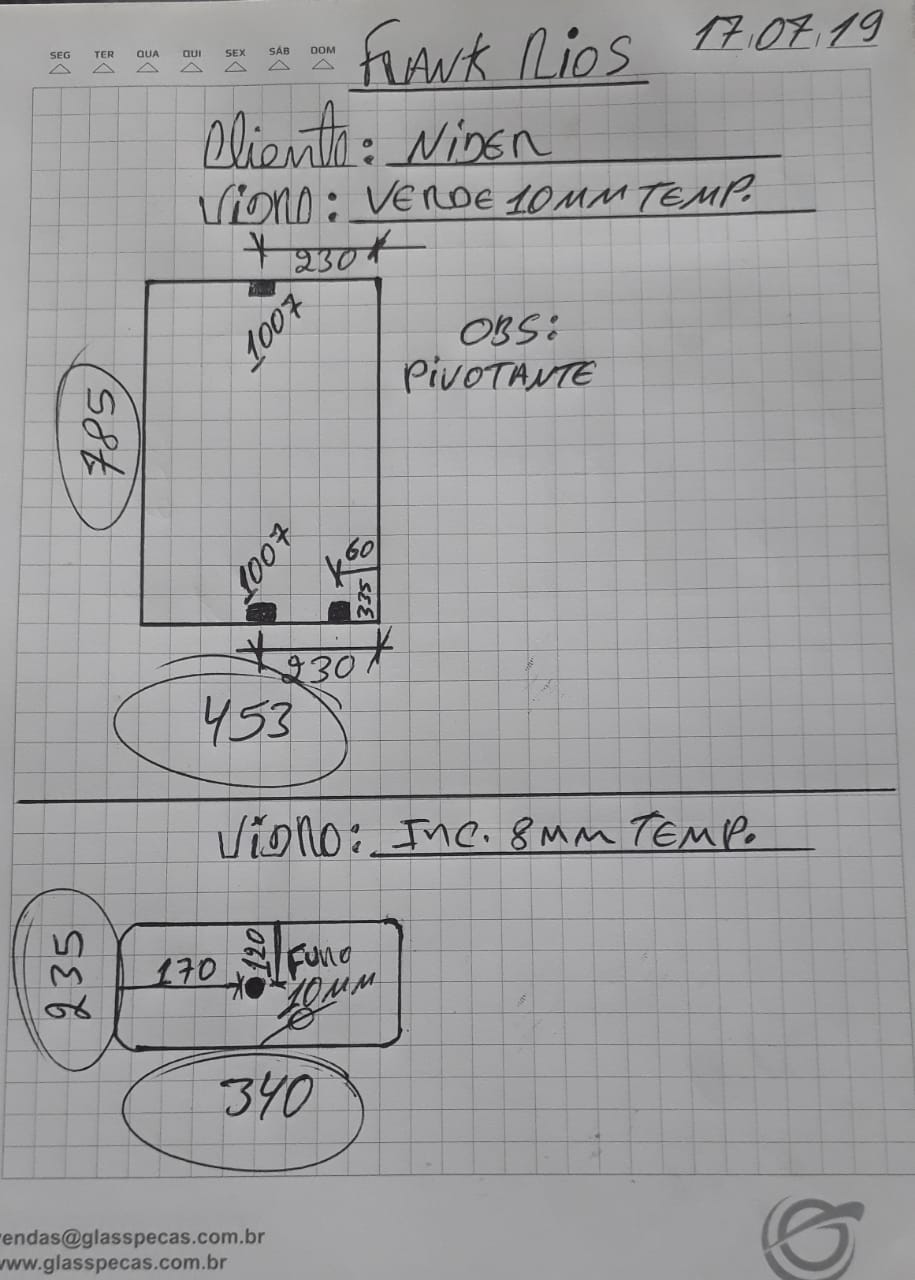 SEG TER QUA QUI SEX SÁB DOM
FRANK RIOS
17.07.19
Cliente: NIDER
VIDRO: VERDE 10MM TEMP.
230
1007
OBS:
PIVOTANTE
785
1007
60
335
230
453
VIDRO: INC. 8MM TEMP.
235
170
120
FURO
10MM
340
endas@glasspecas.com.br
www.glasspecas.com.br